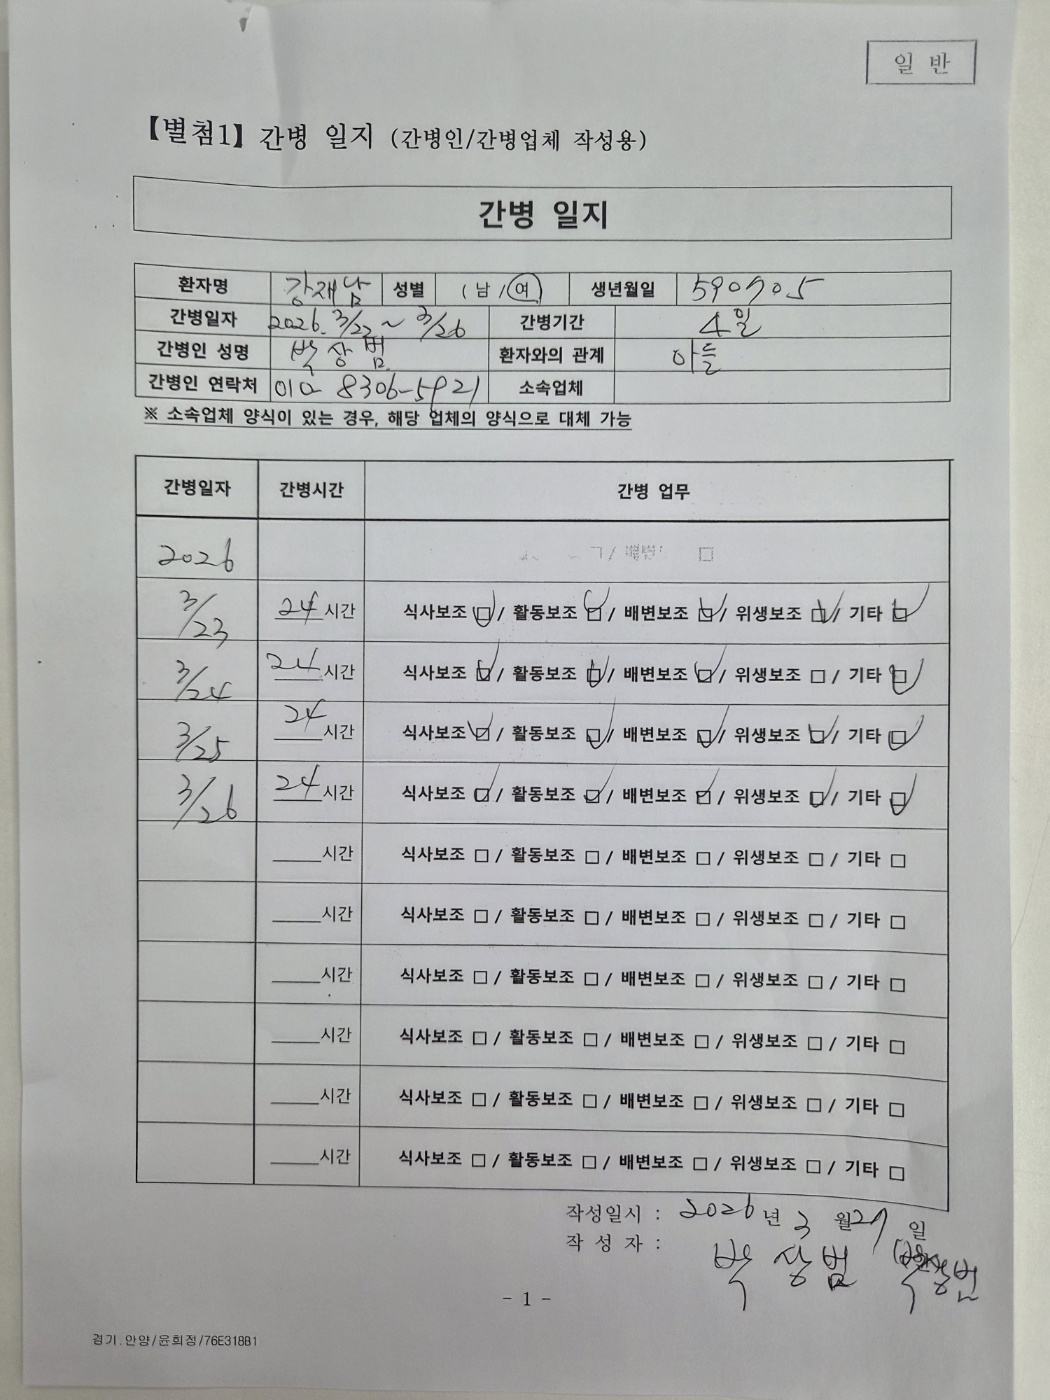 일 반
【별첨1】 간병 일지 (간병인/간병업체 작성용)
간병 일지
환자명 강재남 성별 (남/여) 생년월일 590705
간병일자 2026. 3/23 ~ 3/26 간병기간 4일
간병인 성명 박상범 환자와의 관계 아들
간병인 연락처 010-8306-5921 소속업체
※ 소속업체 양식이 있는 경우, 해당 업체의 양식으로 대체 가능
간병일자 간병시간 간병 업무
2026
3/23 24시간 식사보조 ☑ / 활동보조 ☑ / 배변보조 ☑ / 위생보조 ☑ / 기타 ☑
3/24 24시간 식사보조 ☑ / 활동보조 ☑ / 배변보조 ☑ / 위생보조 □ / 기타 ☑
3/25 24시간 식사보조 ☑ / 활동보조 ☑ / 배변보조 ☑ / 위생보조 ☑ / 기타 ☑
3/26 24시간 식사보조 ☑ / 활동보조 ☑ / 배변보조 ☑ / 위생보조 ☑ / 기타 ☑
_____시간 식사보조 □ / 활동보조 □ / 배변보조 □ / 위생보조 □ / 기타 □
_____시간 식사보조 □ / 활동보조 □ / 배변보조 □ / 위생보조 □ / 기타 □
_____시간 식사보조 □ / 활동보조 □ / 배변보조 □ / 위생보조 □ / 기타 □
_____시간 식사보조 □ / 활동보조 □ / 배변보조 □ / 위생보조 □ / 기타 □
_____시간 식사보조 □ / 활동보조 □ / 배변보조 □ / 위생보조 □ / 기타 □
_____시간 식사보조 □ / 활동보조 □ / 배변보조 □ / 위생보조 □ / 기타 □
작성일시 : 2026년 3월 27일
작 성 자 : 박상범 박상범
- 1 -
경기.안양/윤희정/76E318B1